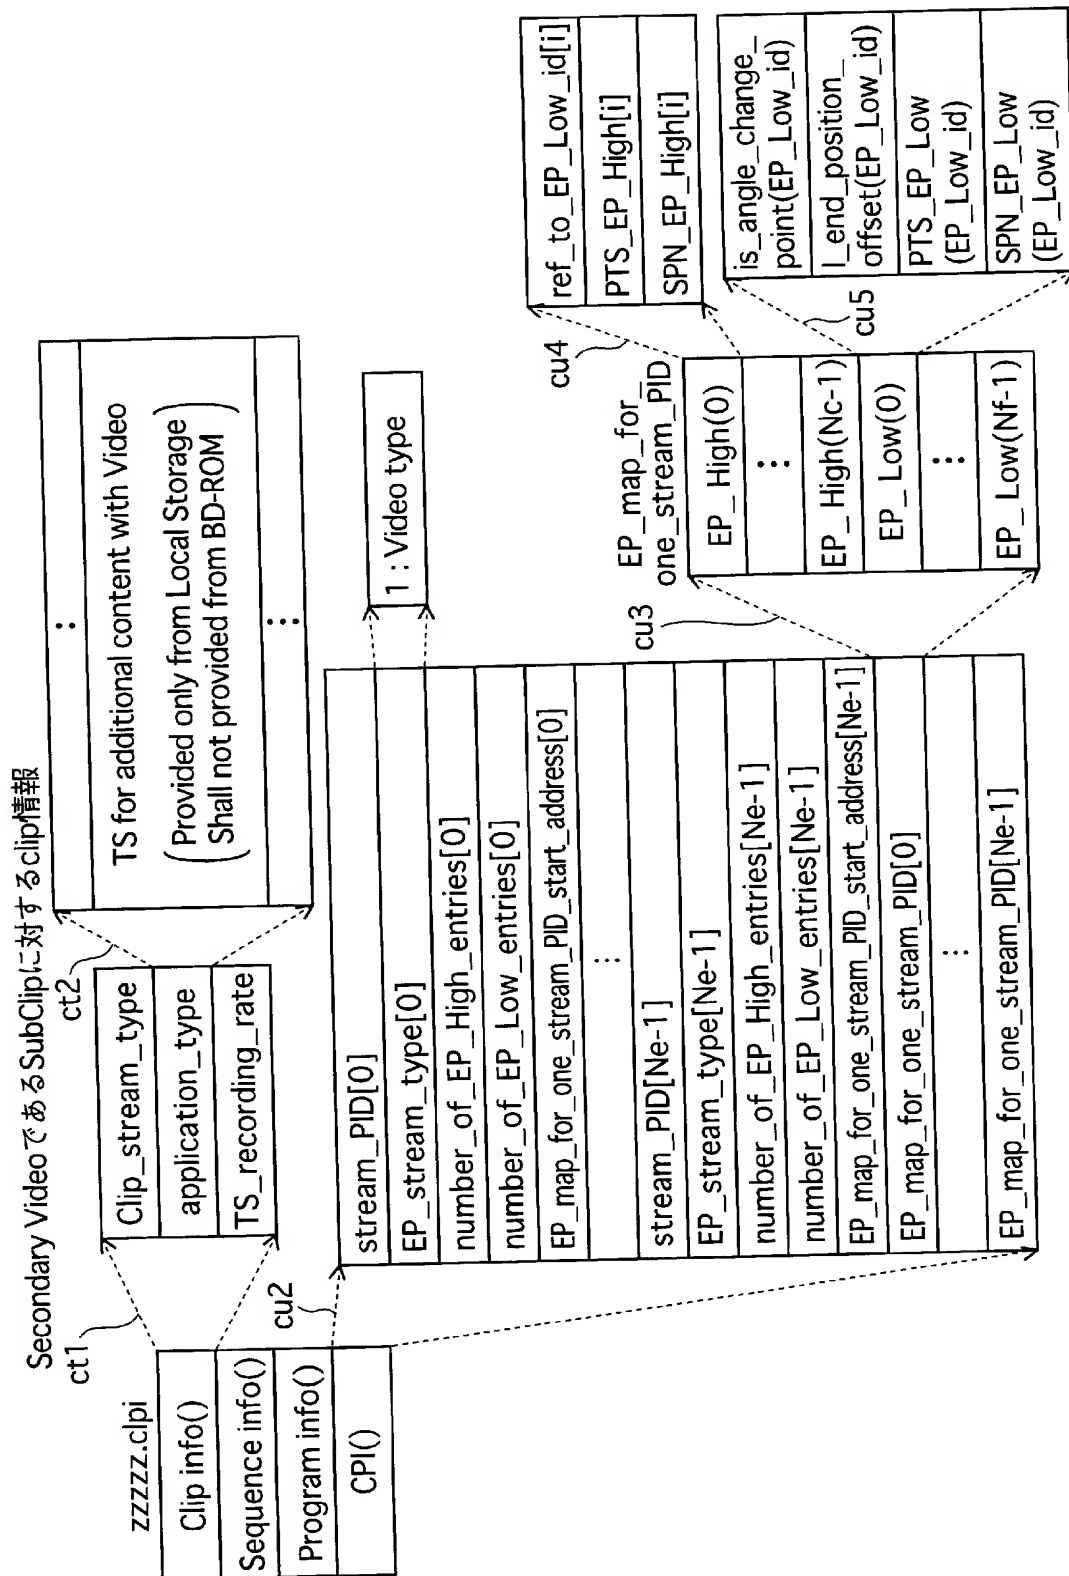 Secondary VideoであるSubClipに対するclip情報
ct1
zzzzz.clpi
Clip info()
Sequence info()
Program info()
CPI()
ct2
Clip_stream_type
application_type
TS_recording_rate
⋮
TS for additional content with Video
(Provided only from Local Storage
Shall not provided from BD-ROM)
⋮
cu2
stream_PID[0]
EP_stream_type[0]
number_of_EP_High_entries[0]
number_of_EP_Low_entries[0]
EP_map_for_one_stream_PID_start_address[0]
⋮
stream_PID[Ne-1]
EP_stream_type[Ne-1]
number_of_EP_High_entries[Ne-1]
number_of_EP_Low_entries[Ne-1]
EP_map_for_one_stream_PID_start_address[Ne-1]
EP_map_for_one_stream_PID[0]
⋮
EP_map_for_one_stream_PID[Ne-1]
1 : Video type
cu3
EP_map_for_
one_stream_PID
EP_High(0)
⋮
EP_High(Nc-1)
EP_Low(0)
⋮
EP_Low(Nf-1)
cu4
ref_to_EP_Low_id[i]
PTS_EP_High[i]
SPN_EP_High[i]
cu5
is_angle_change_
point(EP_Low_id)
I_end_position_
offset(EP_Low_id)
PTS_EP_Low
(EP_Low_id)
SPN_EP_Low
(EP_Low_id)